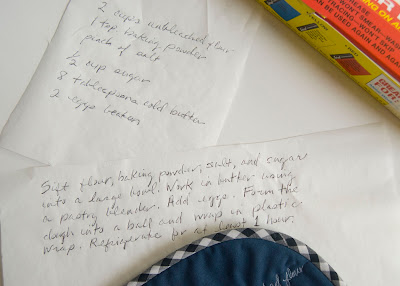 2 cups unbleached flour
1 tsp baking powder
pinch of salt
1/2 cup sugar
8 tablespoons cold butter
2 eggs beaten
Sift flour, baking powder, salt, and sugar
into a large bowl. Work in butter using
a pastry blender. Add eggs. Form the
dough into a ball and wrap in plastic
wrap. Refrigerate for at least 1 hour.
flour